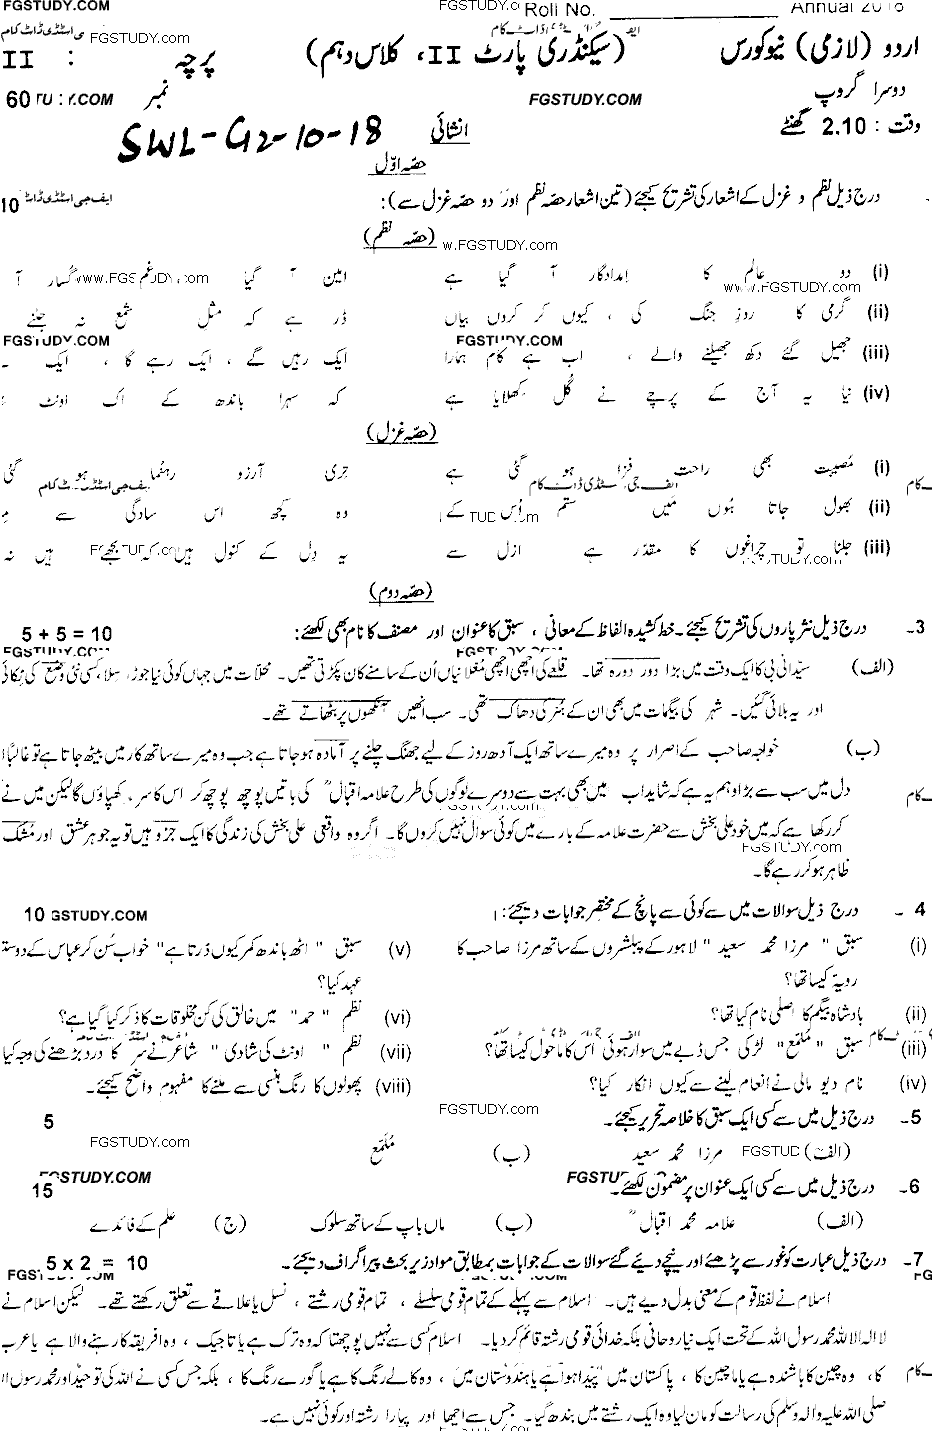 FGSTUDY.COM FGSTUDY.c Roll No. Annual 2018
اردو (لازمی) نیو کورس (سیکنڈری پارٹ II، کلاس دہم) پرچہ : II
دوسرا گروپ FGSTUDY.COM نمبر : 60
وقت : 2.10 گھنٹے انشائی SWL-G2-10-18
حصہ اوّل
درج ذیل نظم و غزل کے اشعار کی تشریح کیجئے (تین اشعار حصہ نظم اور دو حصہ غزل سے): 10
(حصہ نظم) w.FGSTUDY.com
(i) دو عالم کا امدادگار آ گیا ہے امین آ گیا غم گسار آ
(ii) گرمی کا روز جنگ کی ، کیوں کر کروں بیاں ڈر ہے کہ مثل شمع نہ جلنے
FGSTUDY.COM FGSTUDY.COM
(iii) جھیل گئے دکھ جھیلنے والے ، اب ہے کام ہمارا ایک رہیں گے ، ایک رہے گا ، ایک
(iv) نیا یہ آج کے پرچے نے گل کھلایا ہے کہ سہرا باندھ کے اک اونٹ
(حصہ غزل)
(i) مُصیبت بھی راحت فزا ہو گئی ہے تری آرزو رہنما ہو گئی
(ii) بھول جاتا ہوں میں ستم اُس کے وہ کچھ اس سادگی سے
(iii) جلنا تو چراغوں کا مقدر ہے ازل سے یہ دل کے کنول ہیں کہ بجھے ہیں نہ
(حصہ دوم)
3- درج ذیل نثر پاروں کی تشریح کیجئے۔ خط کشیدہ الفاظ کے معانی ، سبق کا عنوان اور مصنف کا نام بھی لکھئے: 5 + 5 = 10
(الف) سیّدانی بی کا ایک وقت میں بڑا دور دورہ تھا۔ قلعے کی اچھی اچھی مُغلانیاں اُن کے سامنے کان پکڑتی تھیں۔ محلّات میں جہاں کوئی نیا جوڑ، سِلا، کسی نئی وضع کی ٹکائی
اور یہ بلائی گئیں۔ شہر کی بیگمات میں بھی ان کے ہُنر کی دھاک تھی۔ سب انھیں آنکھوں پر بٹھاتے تھے۔
(ب) خواجہ صاحب کے اصرار پر وہ میرے ساتھ ایک آدھ روز کے لیے جھنگ چلنے پر آمادہ ہو جاتا ہے جب وہ میرے ساتھ کار میں بیٹھ جاتا ہے تو غالبًا
دل میں سب سے بڑا وہم یہ ہے کہ شاید اب میں بھی بہت سے دوسرے لوگوں کی طرح علامہ اقبالؒ کی باتیں پوچھ پوچھ کر اس کا سر، کھپاؤں گا لیکن میں نے
کر رکھا ہے کہ میں خود علی بخش سے حضرت علامہ کے بارے میں کوئی سوال نہیں کروں گا۔ اگر وہ واقعی علی بخش کی زندگی کا ایک جزو ہیں تو یہ جوہر عشق اور مُشک
ظاہر ہو کر رہے گا۔
4 - درج ذیل سوالات میں سے کوئی سے پانچ کے مختصر جوابات دیجئے: 10
(i) سبق " مرزا محمد سعید " لاہور کے پبلشروں کے ساتھ مرزا صاحب کا (v) سبق " اٹھ باندھ کمر کیوں ڈرتا ہے" خواب سُن کر عباس کے
رویہ کیسا تھا؟ عہد کیا؟
(ii) بادشاہ بیگم کا اصلی نام کیا تھا؟ (vi) نظم " حمد" میں خالق کی کن مخلوقات کا ذکر کیا گیا ہے؟
(iii) سبق " مُلمّع" لڑکی جس ڈبے میں سوار ہوئی اس کا ماحول کیسا تھا؟ (vii) نظم " اونٹ کی شادی " شاعر نے سر کا درد بڑھنے کی وجہ کیا
(iv) نام دیو مالی نے انعام لینے سے کیوں انکار کیا؟ (viii) پھولوں کا رنگ ہنسی سے ملنے کا مفہوم واضح کیجئے۔
5- درج ذیل میں سے کسی ایک سبق کا خلاصہ تحریر کیجئے۔ 5
(الف) مرزا محمد سعید (ب) مُلمّع
6- درج ذیل میں سے کسی ایک عنوان پر مضمون لکھئے۔ 15
(الف) علامہ محمد اقبالؒ (ب) ماں باپ کے ساتھ سلوک (ج) علم کے فائدے
7- درج ذیل عبارت کو غور سے پڑھئے اور نیچے دیئے گئے سوالات کے جوابات بمطابق مواد زیر بحث پیراگراف دیجئے۔ 5 x 2 = 10
اسلام نے لفظ قوم کے معنی بدل دیے ہیں۔ اسلام سے پہلے کے تمام قومی سلسلے ، تمام قومی رشتے ، نسل یا علاقے سے تعلق رکھتے تھے۔ لیکن اسلام نے
لا الہ الا اللہ محمد رسول اللہ کے تحت ایک نیا روحانی بلکہ خدائی قومی رشتہ قائم کر دیا۔ اسلام کسی سے نہیں پوچھتا کہ وہ ترک ہے یا تاجیک ، وہ افریقہ کا رہنے والا ہے یا عرب
کا، وہ چین کا باشندہ ہے یا ماچین کا ، پاکستان میں پیدا ہوا ہے یا ہندوستان میں ، وہ کالے رنگ کا ہے یا گورے رنگ کا ، بلکہ جس کسی نے اللہ کی توحید اور محمد رسول
صلی اللہ علیہ والہ وسلم کی رسالت کو مان لیا وہ ایک رشتے میں بندھ گیا۔ جس سے اچھا اور پیارا رشتہ اور کوئی نہیں ہے۔